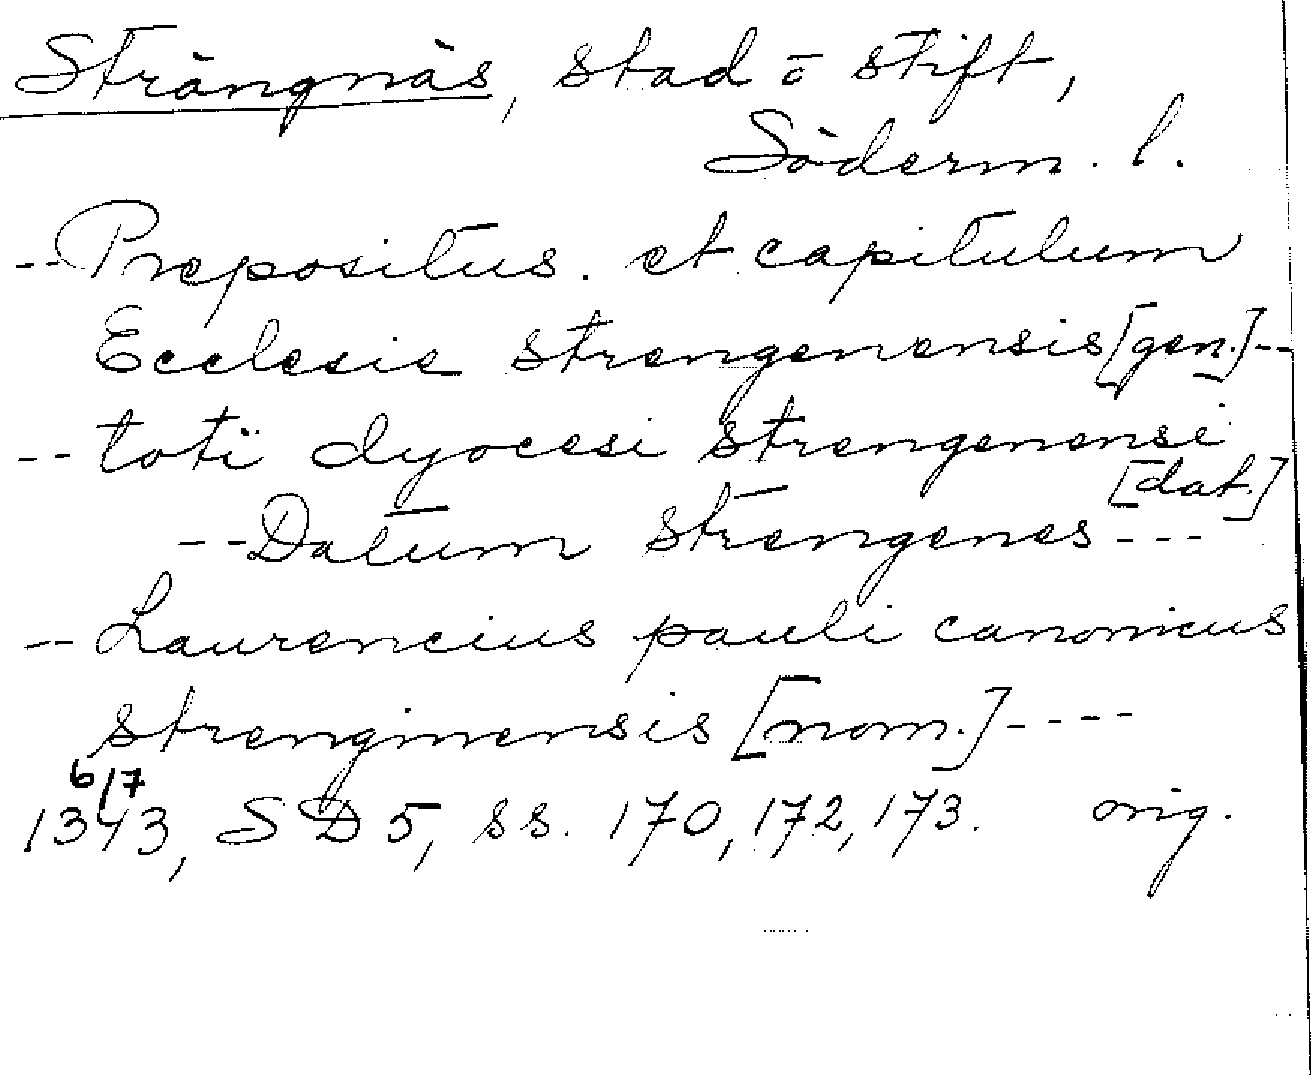 Strängnäs, stad o stift,
Söderm. l.
-- Prepositus. et capitulum
Ecclesie strengenensis [gen.] --
-- toti dyocesi strengenensi
[dat.]
-- Datum strengenes ---
-- Laurencius pauli canonicus
strenginensis [nom.] ----
6/7
1343, SD 5, ss. 170, 172, 173. orig.